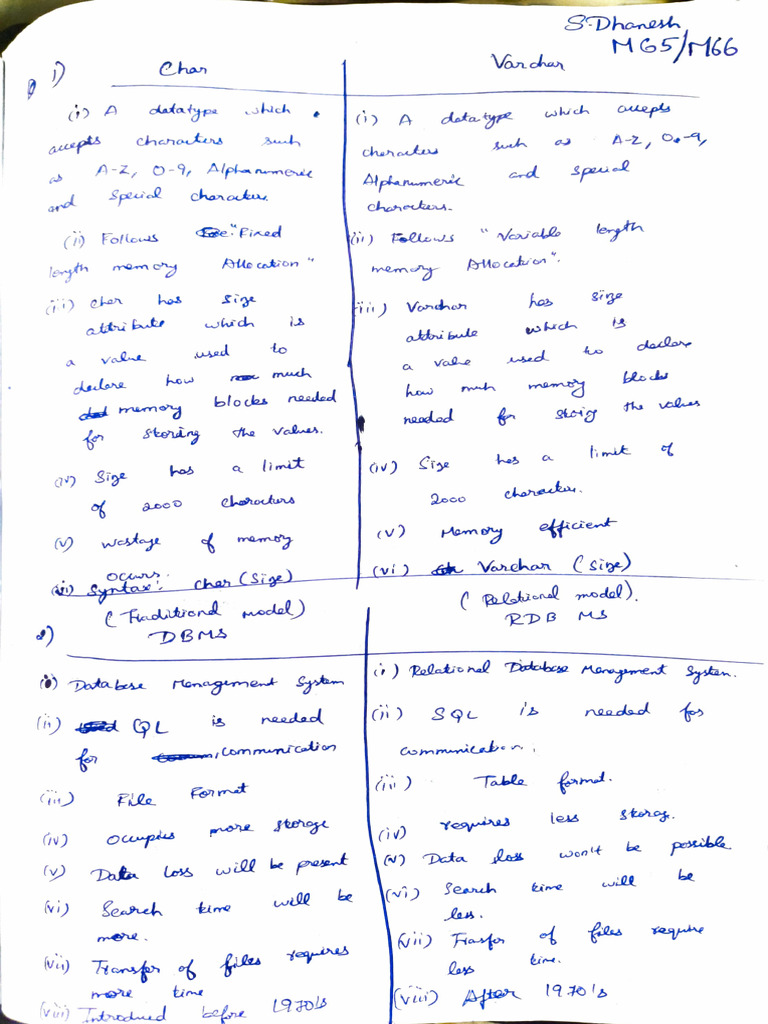 S.Dhanesh
M65/M66
1)
Char
(i) A datatype which
accepts characters such
as A-Z, 0-9, Alphanumeric
and Special characters.
(ii) Follows "Fixed
length memory Allocation"
(iii) char has Size
attribute which is
a value used to
declare how much
memory blocks needed
for storing the values.
(iv) Size has a limit
of 2000 characters
(v) wastage of memory
occurs.
(vi) Syntax: char (Size)
Varchar
(i) A datatype which accepts
characters such as A-Z, 0-9,
Alphanumeric and Special
characters.
(ii) Follows "Variable length
memory Allocation".
(iii) Varchar has size
attribute which is
a value used to declare
how much memory blocks
needed for storing the values
(iv) Size has a limit of
2000 characters.
(v) Memory efficient
(vi) Varchar (Size)
2)
(Traditional model)
DBMS
(i) Database Management System
(ii) QL is needed
for communication
(iii) File Format
(iv) Occupies more storage
(v) Data Loss will be present
(vi) Search time will be
more.
(vii) Transfer of files requires
more time
(viii) Introduced before 1970's
(Relational model).
RDB MS
(i) Relational Database Management System.
(ii) SQL is needed for
communication.
(iii) Table format.
(iv) requires less storage.
(v) Data loss won't be possible
(vi) Search time will be
less.
(vii) Trasfer of files require
less time.
(viii) After 1970's